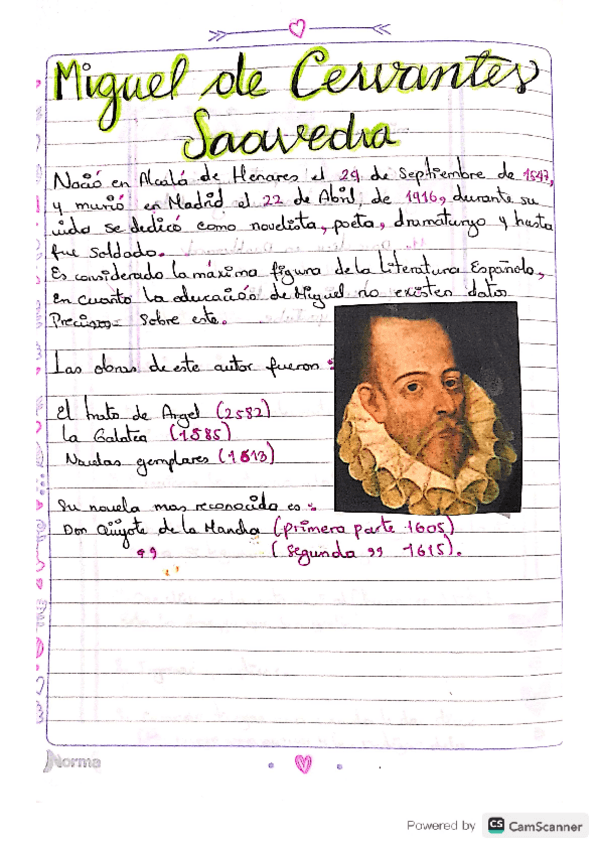 Miguel de Cervantes
Saavedra
Nació en Alcalá de Henares el 29 de Septiembre de 1547,
y murió en Madrid el 22 de Abril, de 1916, durante su
vida se dedicó como novelista, poeta, dramaturgo y hasta
fue soldado.
Es considerado la máxima figura de la literatura Española,
en cuanto la educación de Miguel no existen datos
Precisos sobre este.
Las obras de este autor fueron :
El trato de Argel (2582)
La Galatea (1585)
Novelas ejemplares (1613)
Su novela mas reconocida es :
Don Quijote de la Mancha (primera parte 1605)
" (segunda " 1615).
Norma
Powered by CS CamScanner